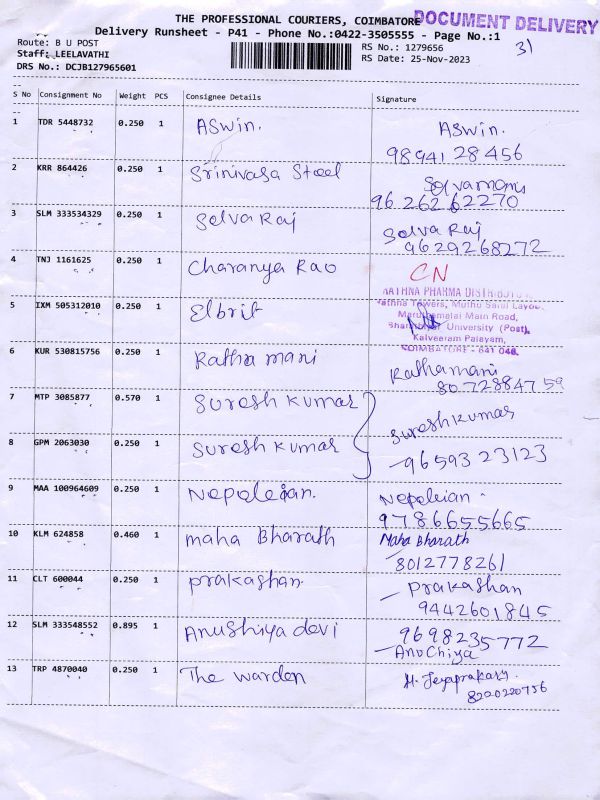 THE PROFESSIONAL COURIERS, COIMBATORE
DOCUMENT DELIVERY
Delivery Runsheet - P41 - Phone No.:0422-3505555 - Page No.:1
31
Route: B U POST
RS No.: 1279656
Staff: LEELAVATHI
RS Date: 25-Nov-2023
DRS No.: DCJB127965601
S No Consignment No Weight PCS Consignee Details Signature
1 TDR 5448732 0.250 1 Aswin. Aswin.
98941 28456
2 KRR 864426 0.250 1 Srinivasa Steel Selvamani
96 262 62270
3 SLM 333534329 0.250 1 Selva Raj Selva Raj
9629268272
4 TNJ 1161625 0.250 1 Charanya Rao CN
RATHNA PHARMA DISTRIBUTORS
Rathna Towers, Muthu Sami Layout,
Maruthamalai Main Road,
5 IXM 505312010 0.250 1 Elbrit
Bharathiar University (Post),
Kalveeram Palayam,
COIMBATORE - 641 046.
6 KUR 530815756 0.250 1 Ratha mani Rathamani
80728847 59
7 MTP 3085877 0.570 1 Suresh kumar Suresh kumar
8 GPM 2063030 0.250 1 Suresh kumar 96593 23123
9 MAA 100964609 0.250 1 Nepoleian. Nepoleian.
9786655665
10 KLM 624858 0.460 1 maha Bharath Maha Bharath
8012778261
11 CLT 600044 0.250 1 prakashan. Prakashan
9442601845
12 SLM 333548552 0.895 1 Anushiya devi 9698235772
Anuchiya
13 TRP 4870040 0.250 1 The warden H. Jeyaprakash
8220220756